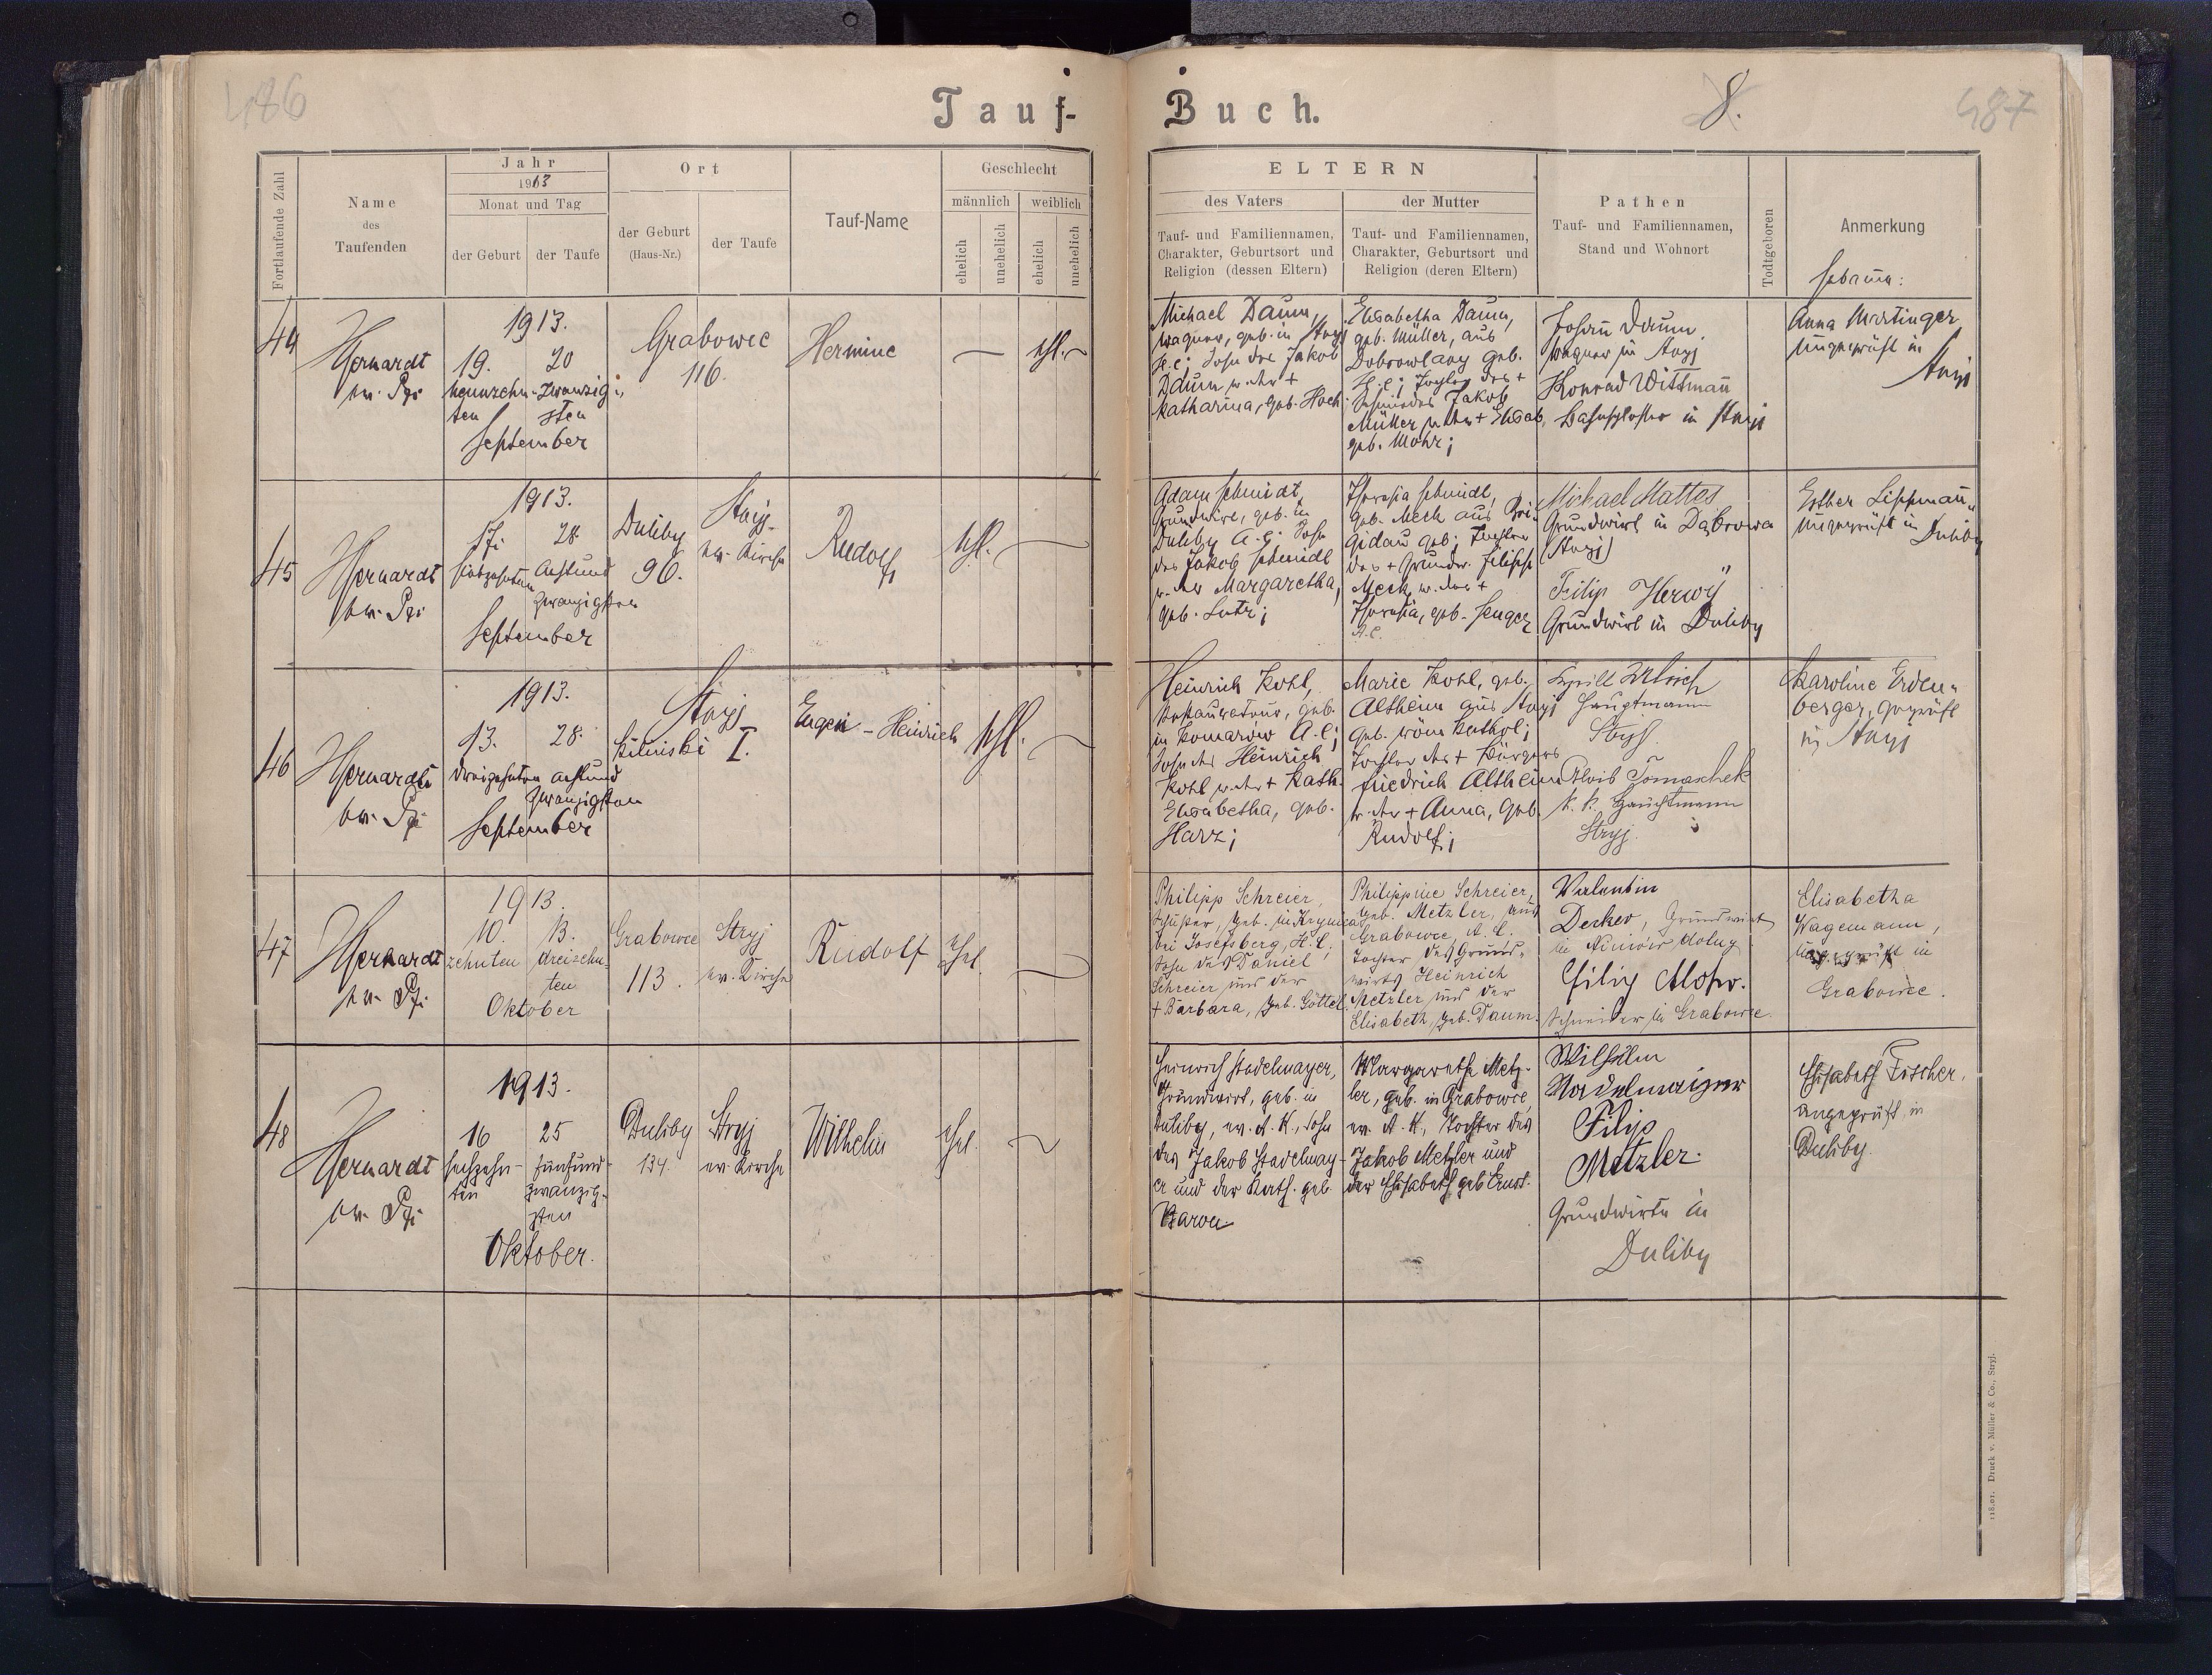 486
Tauf-
Fortlaufende Zahl
Name
des
Taufenden
Jahr
1913
Monat und Tag
der Geburt
der Taufe
Ort
der Geburt
(Haus-Nr.)
der Taufe
Tauf-Name
Geschlecht
männlich
weiblich
ehelich
unehelich
ehelich
unehelich
44
1913.
19. 20
neunzehn- zwanzig-
ten sten
September
Grabowce
116.
Hermine
ehl.
45
1913.
17. 28.
siebzehnten Achtund
zwanzigsten
September
Duliby
96.
Stryj
ev. Kirche
Rudolf
ehl.
46
1913.
13. 28.
dreizehnten achtund
zwanzigsten
September
Stryj
Kilinski I.
Eugen - Heinrich
ehl.
47
1913.
10. 13.
zehnten dreizehn-
ten
Oktober
Grabowce
113.
Stryj
ev. Kirche
Rudolf
ehel.
48
1913.
16 25
sechzehn- fünfund-
ten zwanzig-
sten
Oktober.
Duliby
134.
Stryj
ev. Kirche
Wilhelm
ehel.
Buch.
8.
487
ELTERN
des Vaters
Tauf- und Familiennamen,
Charakter, Geburtsort und
Religion (dessen Eltern)
der Mutter
Tauf- und Familiennamen,
Charakter, Geburtsort und
Religion (deren Eltern)
Pathen
Tauf- und Familiennamen,
Stand und Wohnort
Todtgeboren
Anmerkung
Hebamm:
Michael Daum,
Wagner, geb. in Stryj
H.C; Sohn des Jakob
Daum u. der +
Katharina, geb. Hoch.
Elisabetha Daum,
geb. Müller, aus
Dobrowlany geb.
H.C; Tochter des +
Schmiedes Jakob
Müller u. der + Elisab.
geb. Mohr;
Johann Daum
Wagner in Stryj
Konrad Wittmann
in Stryj
Anna Martinger
ungeprüft in
Stryj
Adam Schmidt,
Grundwirt, geb. in
Duliby A.C. Sohn
des Jakob Schmidt
u. der Margaretha,
geb. Lutz;
Theresia Schmidt,
geb. Meck aus Bri-
gidau geb; Tochter
des + Grundw. Filipp
Meck u. der +
Theresia, geb. Senger
A.C.
Michael Mattes
Grundwirt in Dąbrowa
(Stryj)
Filip Herwy
Grundwirt in Duliby
Esther Lippmann,
ungeprüft in Duliby
Heinrich Kohl,
Restaurateur, geb.
in Komarow A.C;
Sohn des Heinrich
Kohl u. der + Kath.
Elisabetha, geb.
Harz;
Marie Kohl, geb.
Altheim aus Stryj
geb. röm. kathol;
Tochter des + Bürgers
Friedrich Altheim
u. der + Anna, geb.
Rudolf;
Hauptmann
Stryj.
Alois Tomaschek
k. k. Hauptmann
Stryj.
Karoline Erden-
berger, geprüft
in Stryj
Philipp Schreier,
geb. in Krynica
bei Josefsberg, H.C.,
Sohn des Daniel
Schreier und der
+ Barbara, geb. Göttel.
Philippine Schreier,
geb. Metzler, aus
Grabowce A.C.
Tochter des Grund-
wirts Heinrich
Metzler und der
Elisabeth, geb. Daum.
Valentin
Decker, Grundwirt
in Niniów dolny
Filip Mohr.
Schneider in Grabowce.
Elisabetha
Wagemann,
ungeprüft in
Grabowce.
Heinrich Stadelmayer,
Grundwirt, geb. in
Duliby, ev. A. K., Sohn
des Jakob Stadelmay-
er und der Kath. geb.
Baron.
Margarethe Metz-
ler, geb. in Grabowce,
ev. A. K., Tochter des
Jakob Metzler und
der Elisabeth geb Ernst.
Wilhelm
Stadelmaizer
Filip
Metzler.
Grundwirte in
Duliby
Elisabeth Fischer,
ungeprüft, in
Duliby.
118.01. Druck v. Müller & Co., Stryj.